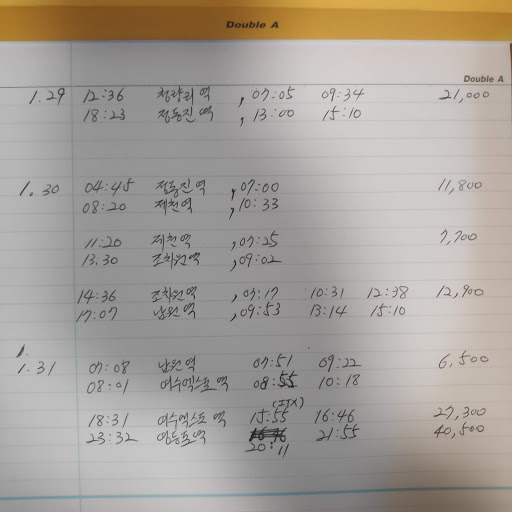 Double A
Double A
1.29 12:36 청량리역 , 07:05 09:34 21,000
18:23 정동진역 , 13:00 15:10
1.30 04:45 정동진역 , 07:00 11,800
08:20 제천역 , 10:33
11:20 제천역 , 07:25 7,700
13:30 조치원역 , 09:02
14:36 조치원역 , 07:17 10:31 12:38 12,900
17:07 남원역 , 09:53 13:14 15:10
1.31 07:08 남원역 07:51 09:22 6,500
08:01 여수엑스포역 08:55 10:18
(KTX)
18:31 여수엑스포역 15:55 16:46 27,300
23:32 영등포역 21:55 40,500
20:11